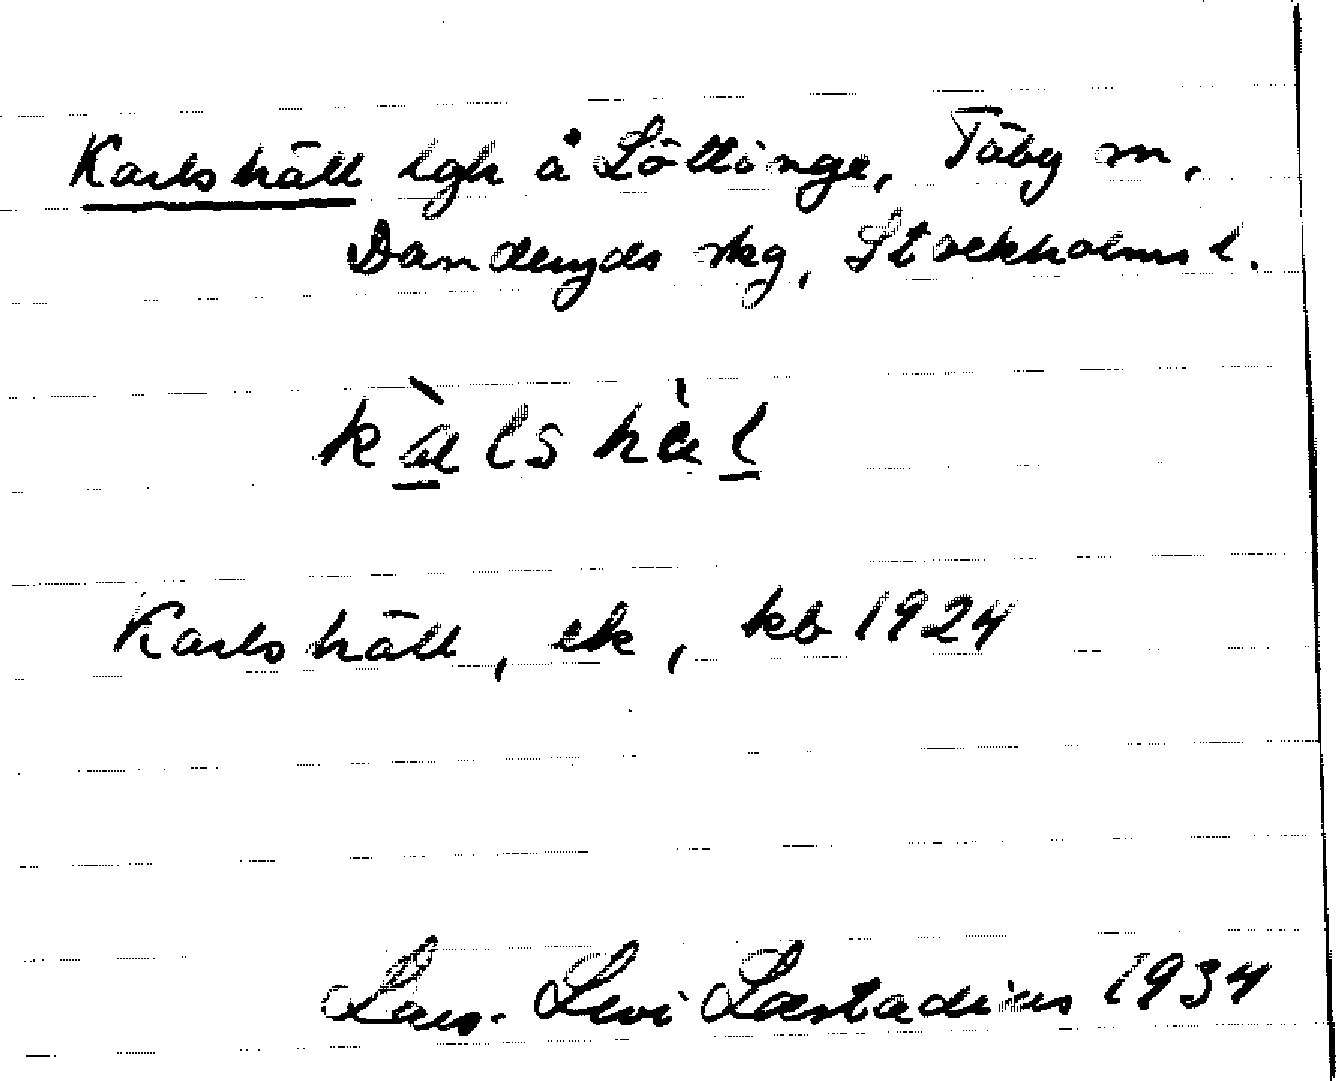 Karlshäll lgh å Löttinge, Täby sn,
Danderyds skg, Stockholms l.
kàlshàl
Karlshäll, ek, kb 1924
Lars-Levi Læstadius 1934